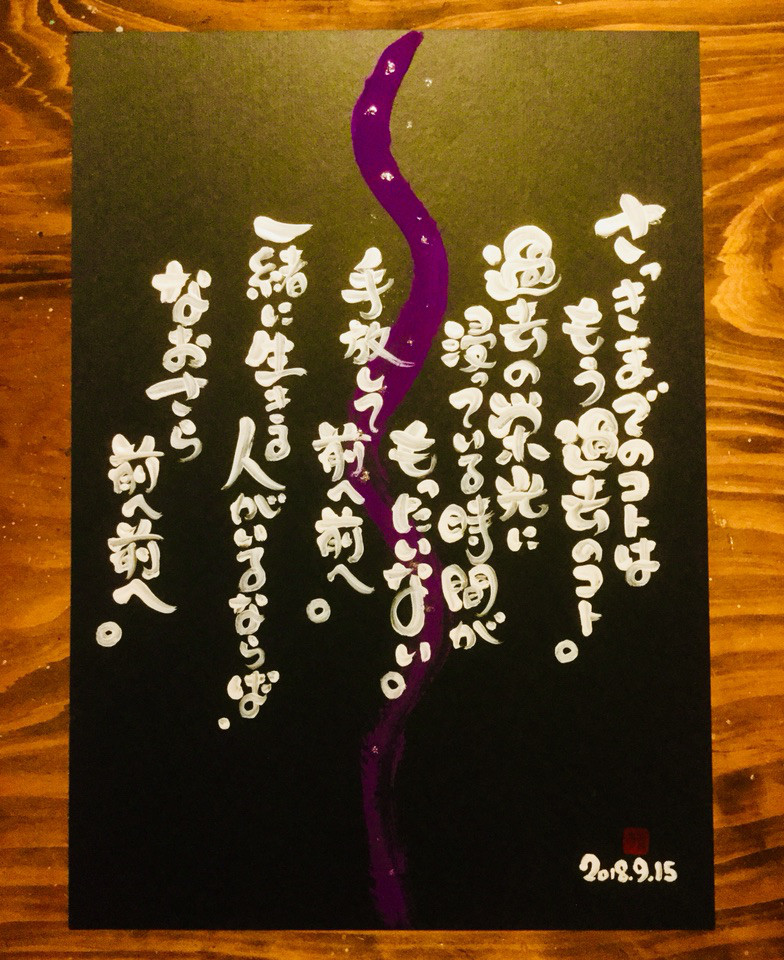 さっきまでのコトは
もう過去のコト。
過去の栄光に
浸っている時間が
もったいない。
手放して
前へ前へ。
一緒に生きる
人がいるならば.
なおさら
前へ前へ。
2018.9.15